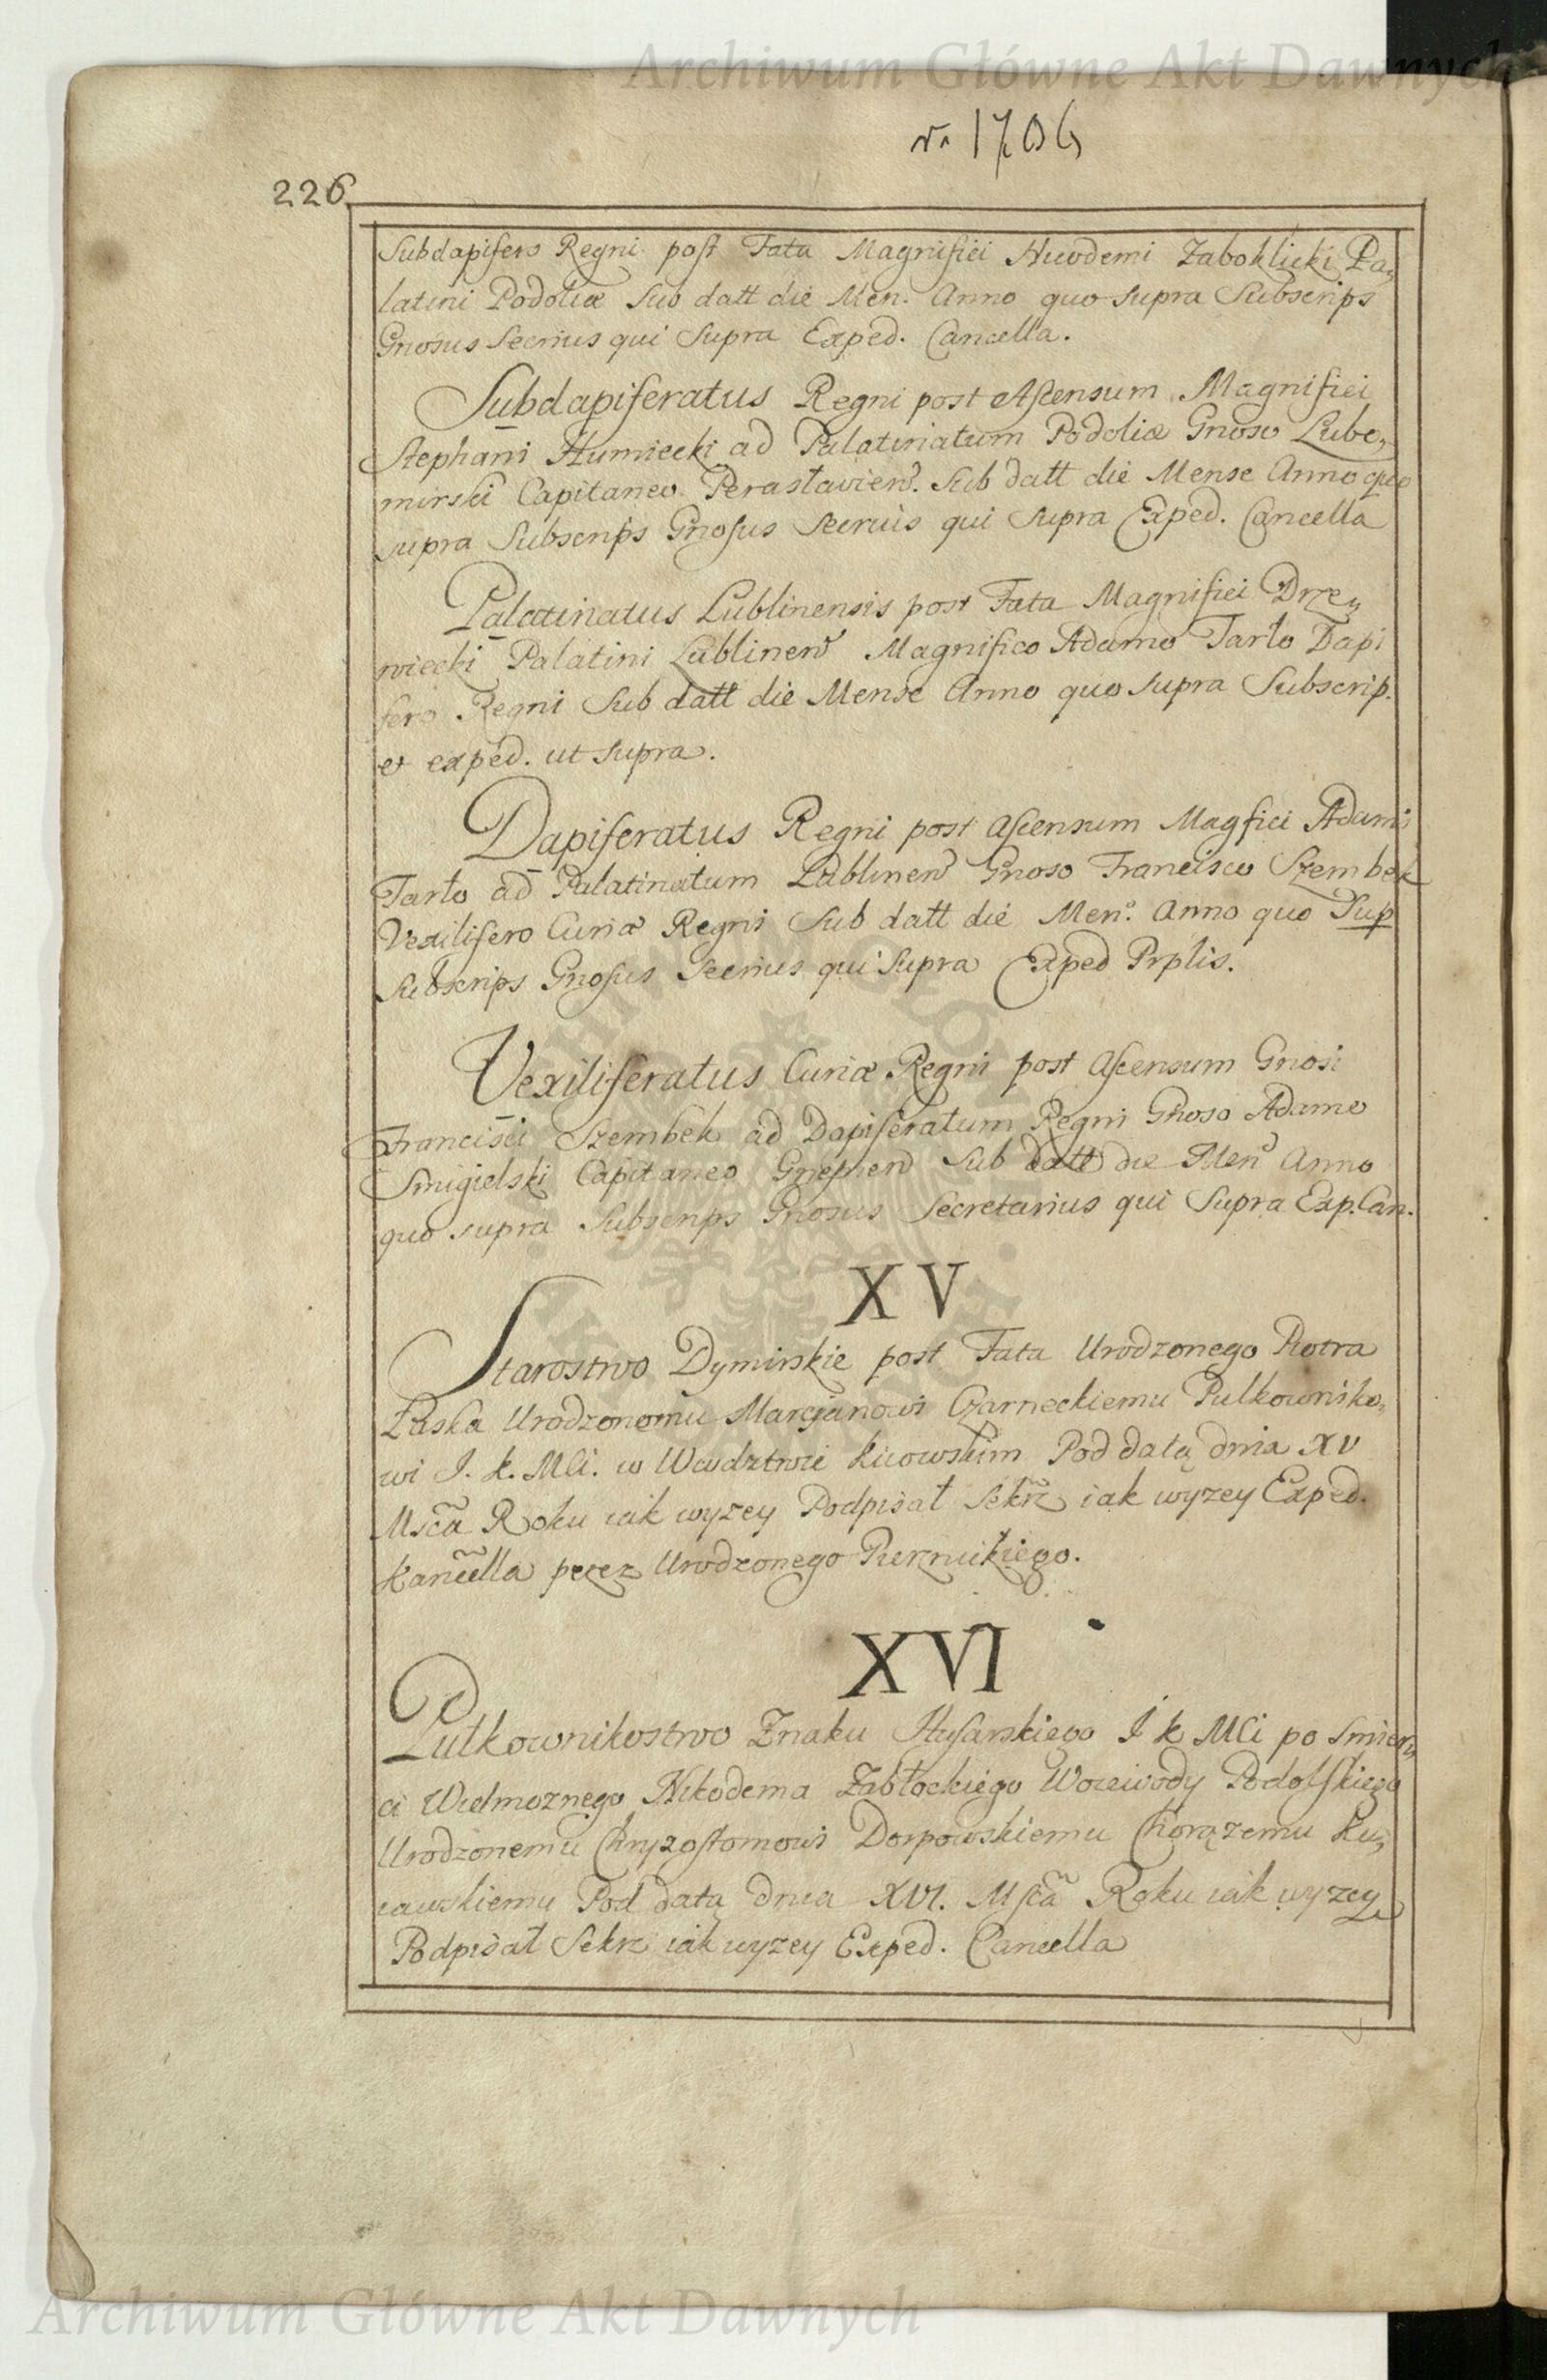 Archiwum Główne Akt Dawnych
1706
226.
Subdapifero Regni post Fata Magnifici Nicodemi Zaboklicki Pa„
latini Podoliæ Sub datt die Men. Anno quo supra Subscrips
Gnosus Secrius qui Supra Exped. Cancella.
Subdapiferatus Regni post Ascensum Magnifici
Stephani Humiecki ad Palatinatum Podoliæ Gnoso Lubo„
mirski Capitaneo Perasłavien. Sub datt die Mense Anno quo
supra Subscrips Gnosus Secrius qui Supra Exped. Cancella
Palatinatus Lublinensis post Fata Magnifici Drze„
wiecki Palatini Lublinen Magnifico Adamo Tarło Dapi
fero Regni Sub datt die Mense Anno quo supra Subscrip.
et exped. ut supra.
Dapiferatus Regni post Ascensum Magfici Adami
Tarło ad Palatinatum Lublinen Gnoso Francisco Szembek
Vexilifero Curiæ Regni Sub datt die Men. Anno quo Sup
Subscrips Gnosus Secrius qui Supra Exped Prplis.
Vexiliferatus Curiæ Regni post Ascensum Gnosi
Francisci Szembek ad Dapiferatum Regni Gnoso Adamo
Smigielski Capitaneo Gnesnen Sub datt die Men Anno
quo supra Subscrips Gnosus Secretarius qui Supra Exp. Can.
XV
Starostwo Dymirskie post Fata Urodzonego Piotra
Łaska Urodzonomu Marcjanowi Czarneckiemu Pulkowniko„
wi J. K. Mci. w Wwdztwie Kiiowskim Pod datą dnia XV
Msca Roku iak wyzey Podpisał Sekrz iak wyzey Exped.
Kancella przez Urodzonego Piernickiego.
XVI
Pulkownikostwo Znaku Husarskiego J K Mci po smier„
ci Wielmoznego Nikodema Zabłockiego Woiewody Podolskiego
Urodzonemu Chryzostomowi Dorpowskiemu Chorązemu Ku„
iawskiemu Pod datą dnia XVI. Msca Roku iak wyzey
Podpisał Sekrz iak wyzey Exped. Cancella
Archiwum Główne Akt Dawnych